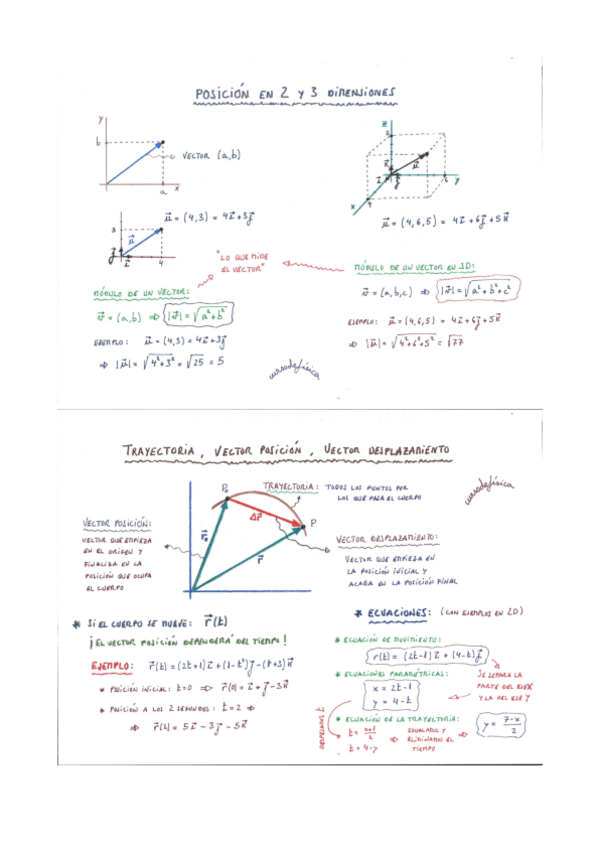 POSICIÓN EN 2 Y 3 DIMENSIONES
y
b
VECTOR (a,b)
a
x
z
5
K
u
I
J
6
y
x
4
u = (4,3) = 4i+3j
u = (4,6,5) = 4i+6j+5k
3
u
j
i
4
"LO QUE MIDE
EL VECTOR"
MÓDULO DE UN VECTOR:
v = (a,b) ⇒ |v| = √a²+b²
EJEMPLO: u = (4,3) = 4i+3j
⇒ |u| = √4²+3² = √25 = 5
MÓDULO DE UN VECTOR EN 3D:
v = (a,b,c) ⇒ |v| = √a²+b²+c²
EJEMPLO: u = (4,6,5) = 4i+6j+5k
⇒ |u| = √4²+6²+5² = √77
cursodefísica
TRAYECTORIA, VECTOR POSICIÓN, VECTOR DESPLAZAMIENTO
cursodefísica
P₀
TRAYECTORIA: TODOS LOS PUNTOS POR
LOS QUE PASA EL CUERPO
Δr
P
r
VECTOR POSICIÓN:
VECTOR QUE EMPIEZA
EN EL ORIGEN Y
FINALIZA EN LA
POSICIÓN QUE OCUPA
EL CUERPO
VECTOR DESPLAZAMIENTO:
VECTOR QUE EMPIEZA EN
LA POSICIÓN INICIAL Y
ACABA EN LA POSICIÓN FINAL
* SI EL CUERPO SE MUEVE: r(t)
¡EL VECTOR POSICIÓN DEPENDERÁ DEL TIEMPO!
EJEMPLO: r(t) = (2t+1)i + (1-t²)j - (t+3)k
* POSICIÓN INICIAL: t=0 ⇒ r(0) = i+j-3k
* POSICIÓN A LOS 2 SEGUNDOS: t=2 ⇒
⇒ r(2) = 5i-3j-5k
* ECUACIONES: (CON EJEMPLOS EN 2D)
* ECUACIÓN DE MOVIMIENTO:
r(t) = (2t-1)i + (4-t)j
* ECUACIONES PARAMÉTRICAS:
x = 2t-1
y = 4-t
SE SEPARA LA
PARTE DEL EJE X
Y LA DEL EJE Y
* ECUACIÓN DE LA TRAYECTORIA:
DESPEJAMOS t
t = x+1/2
t = 4-y
⇒ IGUALAMOS Y
ELIMINAMOS EL
TIEMPO
⇒ y = 7-x/2